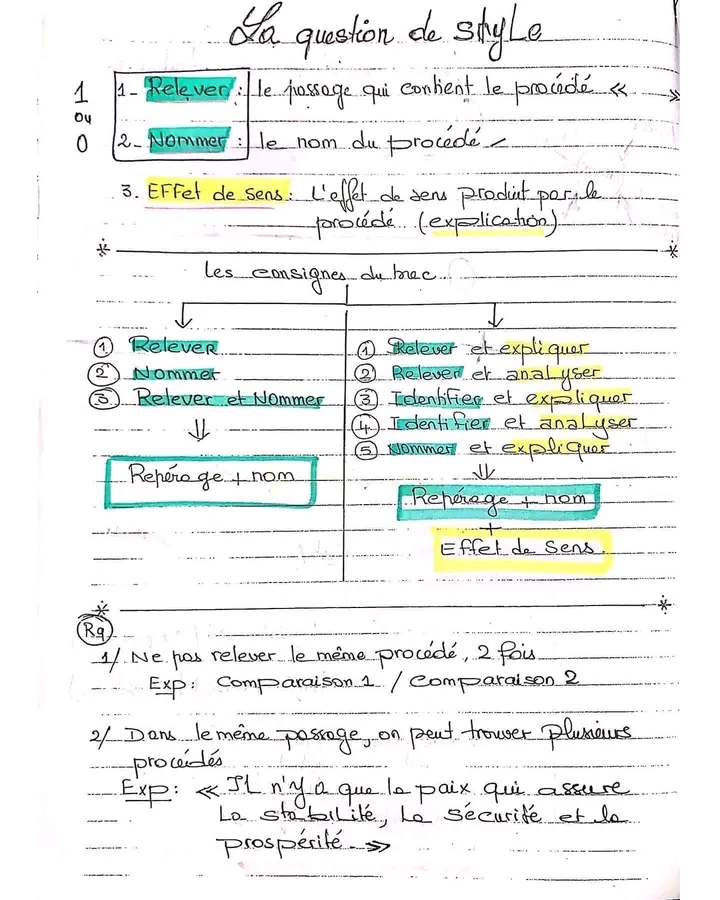 La question de style
1 ou 0
1- Relever : le passage qui contient le procédé « »
2- Nommer : le nom du procédé
3. Effet de sens : L'effet de sens produit par le
procédé (explication)
Les consignes du bac
① Relever
② Nommer
③ Relever et Nommer
⇓
Repérage + nom
① Relever et expliquer
② Relever et analyser
③ Identifier et expliquer
④ Identifier et analyser
⑤ Nommer et expliquer
⇓
Repérage + nom
+
Effet de Sens.
Rq
1/ Ne pas relever le même procédé, 2 fois
Exp : Comparaison 1 / Comparaison 2
2/ Dans le même passage, on peut trouver plusieurs
procédés
Exp : « Il n'y a que la paix qui assure
La stabilité, la sécurité et la
prospérité. »